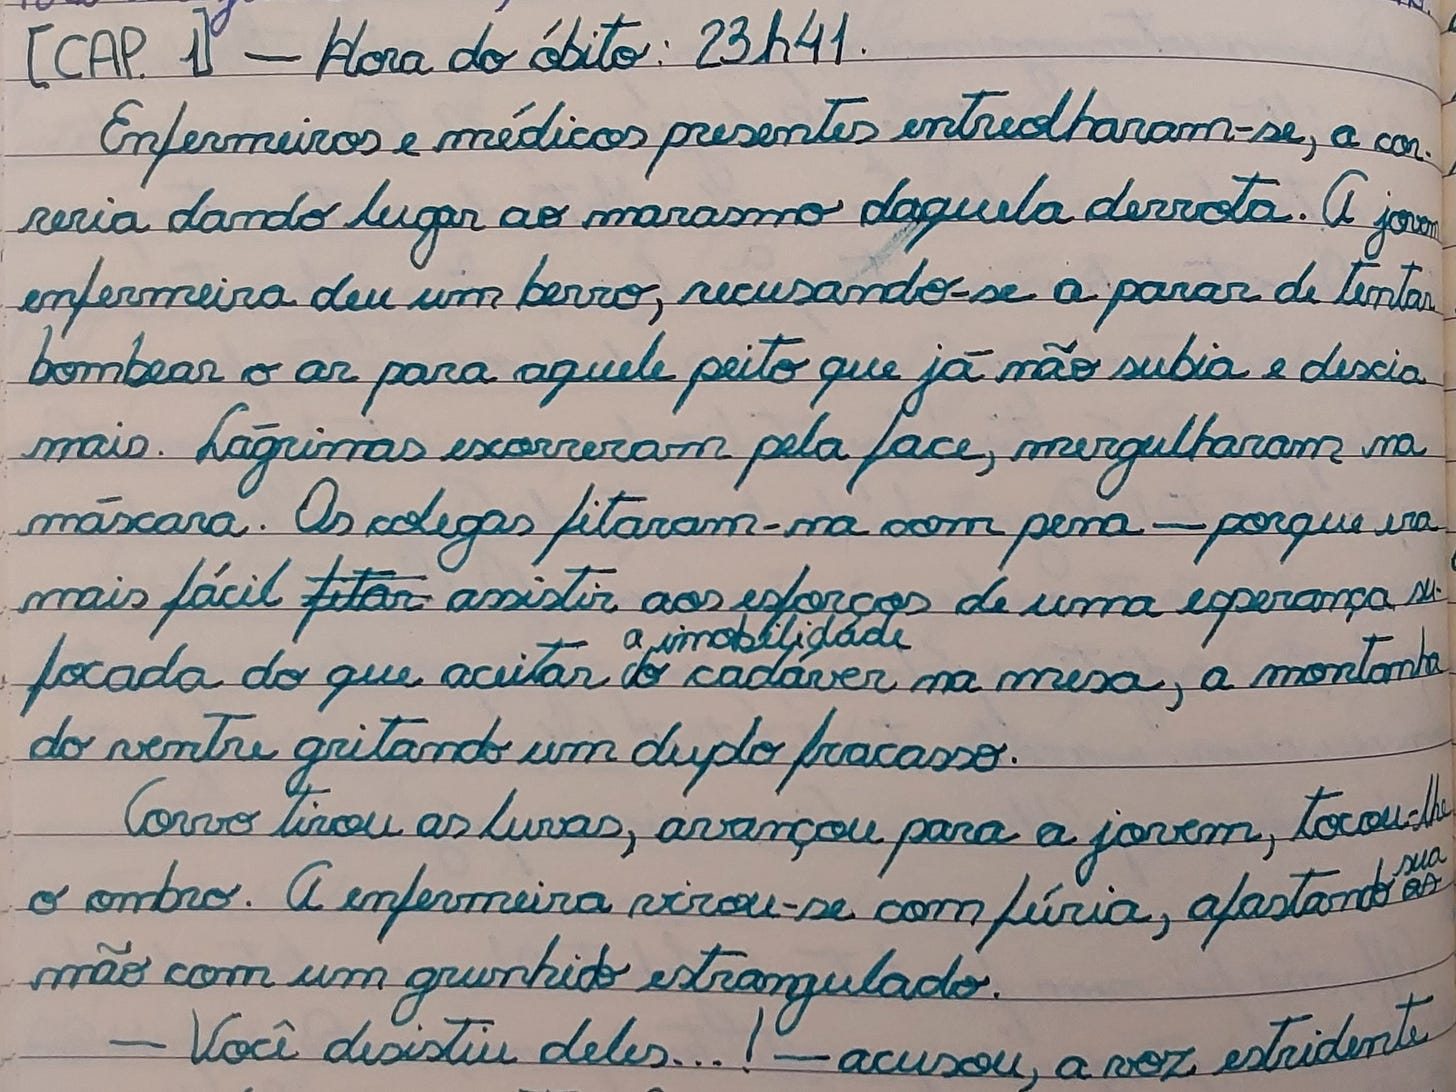 [CAP. 1] — Hora do óbito: 23h41.
Enfermeiros e médicos presentes entreolharam-se, a cor-
reria dando lugar ao marasmo daquela derrota. A jovem
enfermeira deu um berro, recusando-se a parar de tentar
bombear o ar para aquele peito que já não subia e descia
mais. Lágrimas escorreram pela face, mergulharam na
máscara. Os colegas fitaram-na com pena — porque era
mais fácil fitar assistir aos esforços de uma esperança su-
a imobilidade
focada do que aceitar do cadáver na mesa, a montanha
do ventre gritando um duplo fracasso.
Corvo tirou as luvas, avançou para a jovem, tocou-lhe
sua
o ombro. A enfermeira virou-se com fúria, afastando
mão com um grunhido estrangulado.
— Você desistiu deles...! — acusou, a voz estridente